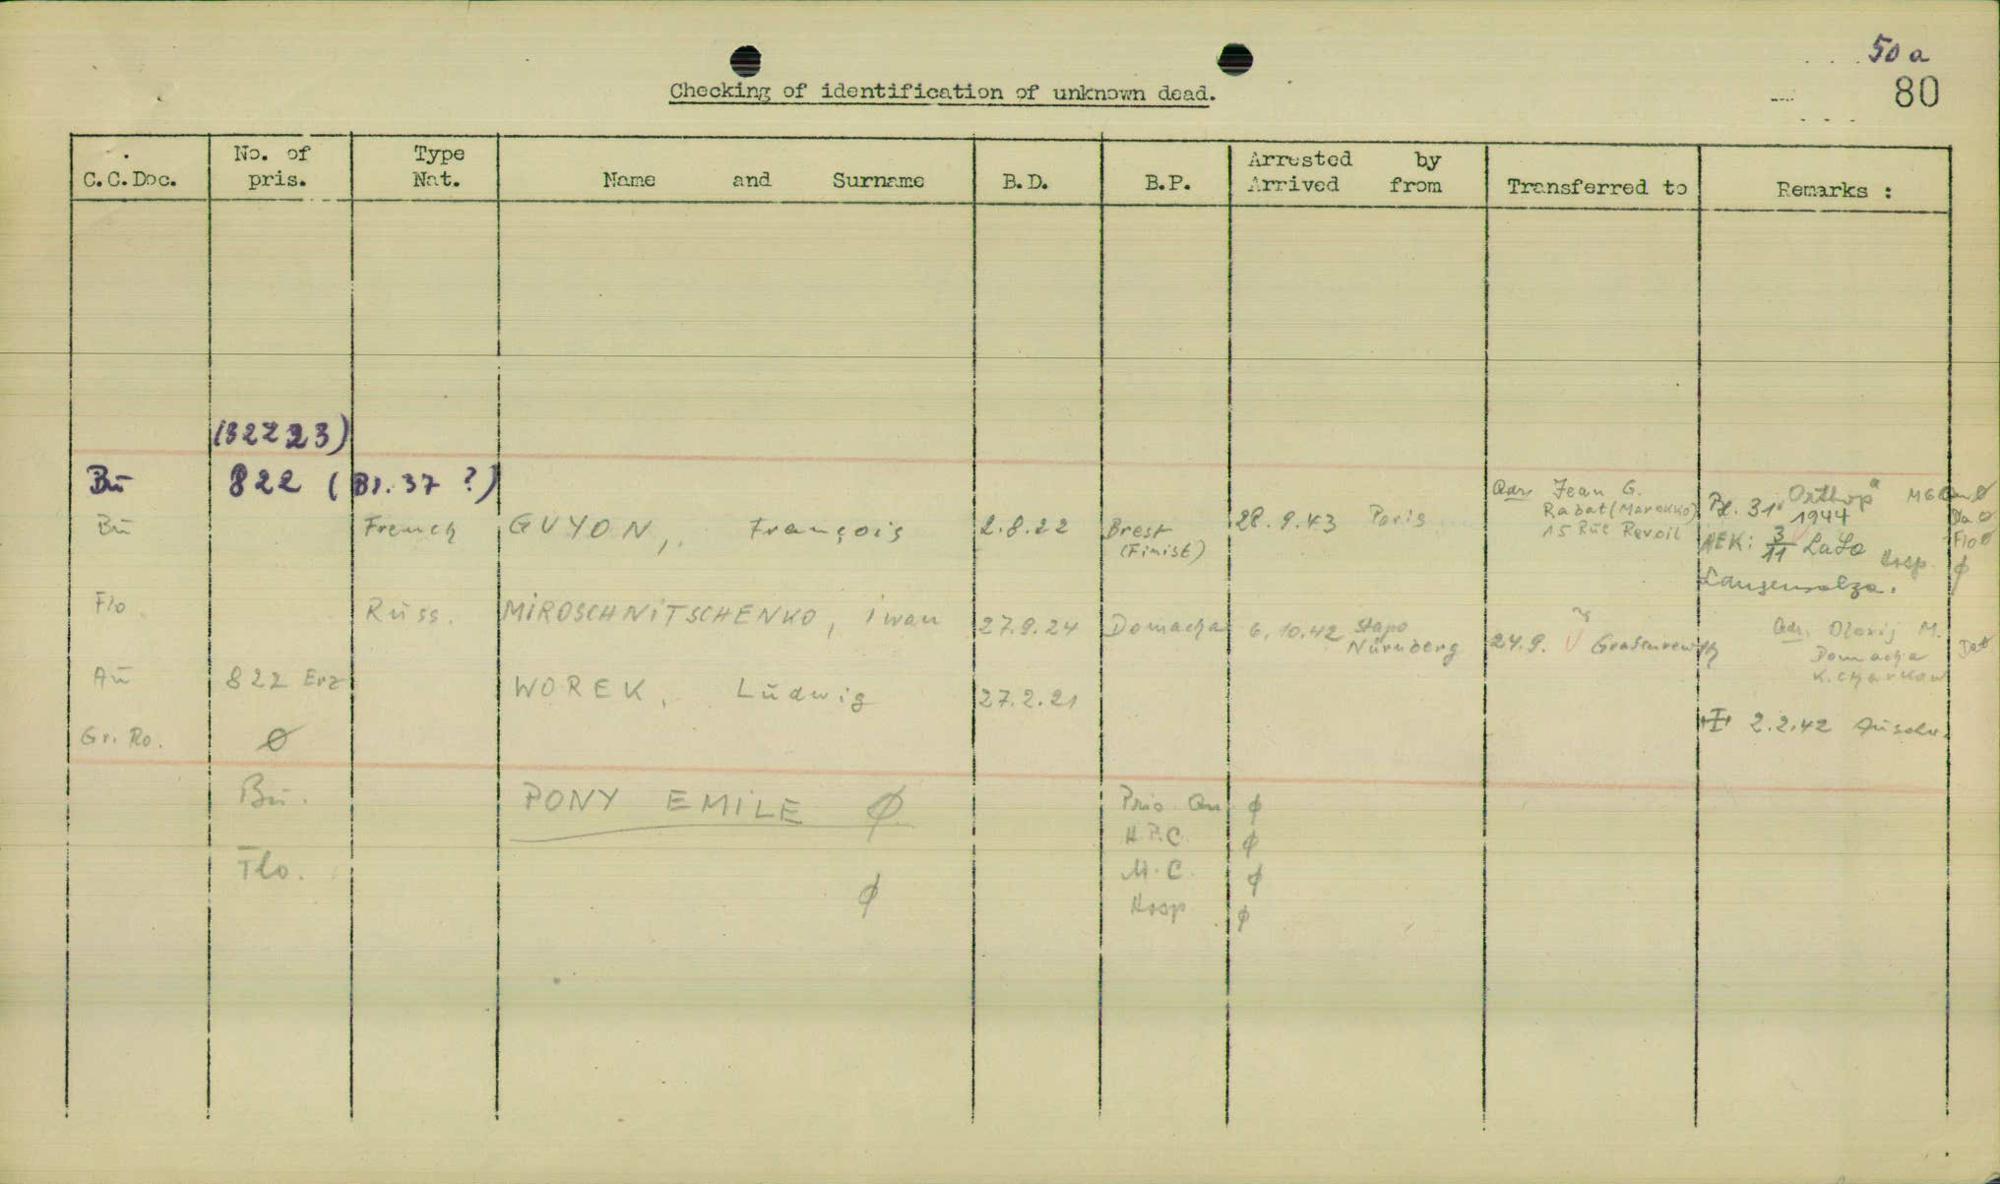 50 a
80
Checking of identification of unknown dead.
C.C.Doc. No. of pris. Type Nat. Name and Surname B.D. B.P. Arrested by Arrived from Transferred to Remarks :
(32223)
Bū 822 (Bl. 37 ?)
Bū French GUYON, François 2.8.22 Brest (Finist) 28.9.43 Paris
Adr. Jean G.
Rabat (Marokko)
15 Rue Revoil
Orthop
1944
3/11
Hosp ø
Langensalza.
Flo Rūss. MIROSCHNITSCHENKO, iwan 27.9.24 Domacha 6.10.42 Stapo Nürnberg 24.9. Grafenrewth
Adr.
Domacha
K. Charkow
Aū 822 Erz WOREK, Lūdwig 27.2.21
2.2.42
Gr. Ro. ø
Bū. PONY EMILE ø
ø
H.P.C. ø
M.C. ø
Flo. ø
Hosp ø